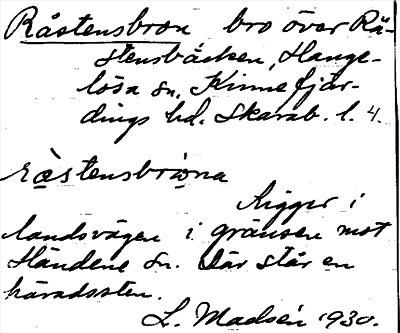 Råstensbron bro över Rå-
stensbäcken, Hange-
lösa sn. Kinnefjär-
dings hd. Skarab. l. 4.
råstensbrona
ligger i
landsvägen i gränsen mot
Händene sn. Där står en
häradssten.
L. Madsén 1930.